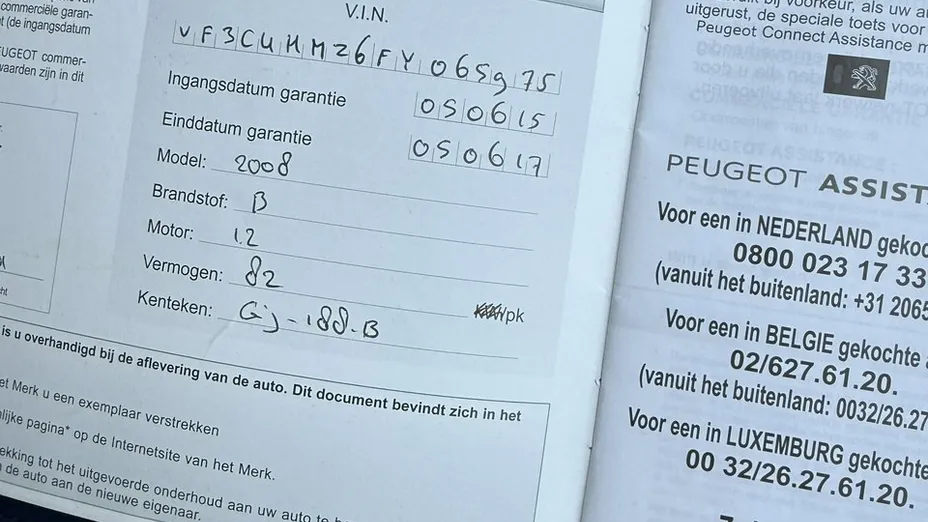 commerciële garan-
(de ingangsdatum
EUGEOT commer-
waarden zijn in dit
V.I.N.
VF3CUHMZ6FY065975
Ingangsdatum garantie 050615
Einddatum garantie 050617
Model: 2008
Brandstof: B
Motor: 1.2
Vermogen: 82 /pk
Kenteken: Gj-188-B
is u overhandigd bij de aflevering van de auto. Dit document bevindt zich in het
et Merk u een exemplaar verstrekken
lijke pagina* op de Internetsite van het Merk.
ekking tot het uitgevoerde onderhoud aan uw auto te
de auto aan de nieuwe eigenaar.
bij voorkeur, als uw a
uitgerust, de speciale toets voor
Peugeot Connect Assistance m
PEUGEOT ASSIST
Voor een in NEDERLAND gekoc
0800 023 17 33
(vanuit het buitenland: +31 2065
Voor een in BELGIE gekochte
02/627.61.20.
(vanuit het buitenland: 0032/26.27
Voor een in LUXEMBURG gekochte
00 32/26.27.61.20.